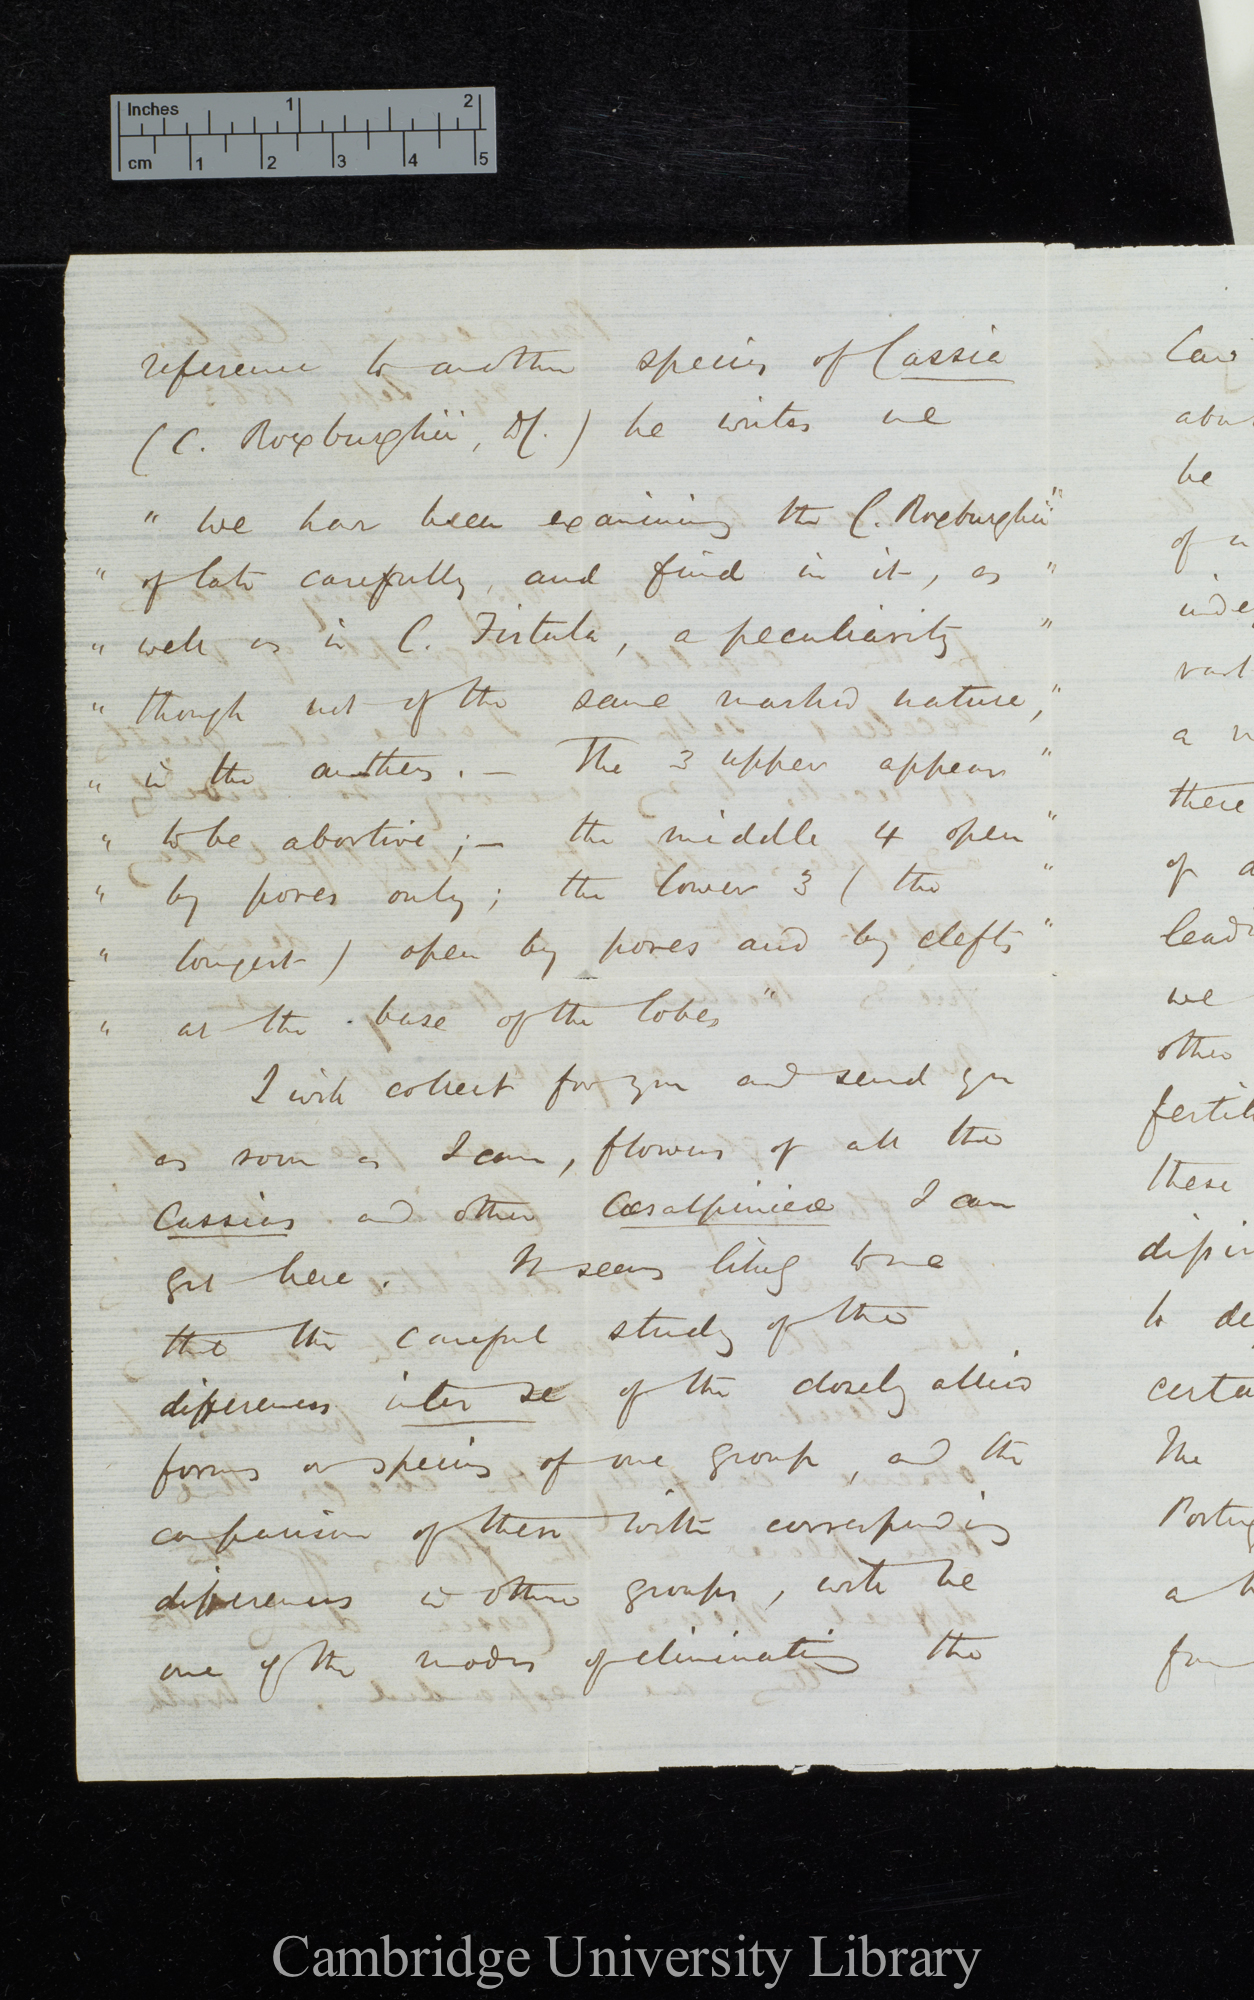 Inches 1 2
cm 1 2 3 4 5
reference to another species of Cassia
(C. Roxburghii, DC.) he writes me
" We have been examining the C. Roxburghii "
" of late carefully, and find in it, as "
" well as in C. Fistula, a peculiarity "
" though not of the same marked nature, "
" in the anthers. — The 3 upper appear "
" to be abortive; — the middle 4 open "
" by pores only; the lower 3 (the "
" longest) open by pores and by clefts "
" at the base of the lobes "
I will collect for you and send you
as soon as I can, flowers of all the
Cassias and other Cæsalpinieæ I can
get here. It seems likely to me
that the careful study of the
differences inter se of the closely allied
forms or species of one group, and the
comparison of them with corresponding
differences in other groups, will be
one of the modes of eliminating the
be
of
a
there
of
leadi
we
other
fertil
these
to de
certa
The
Portug
a
Cambridge University Library